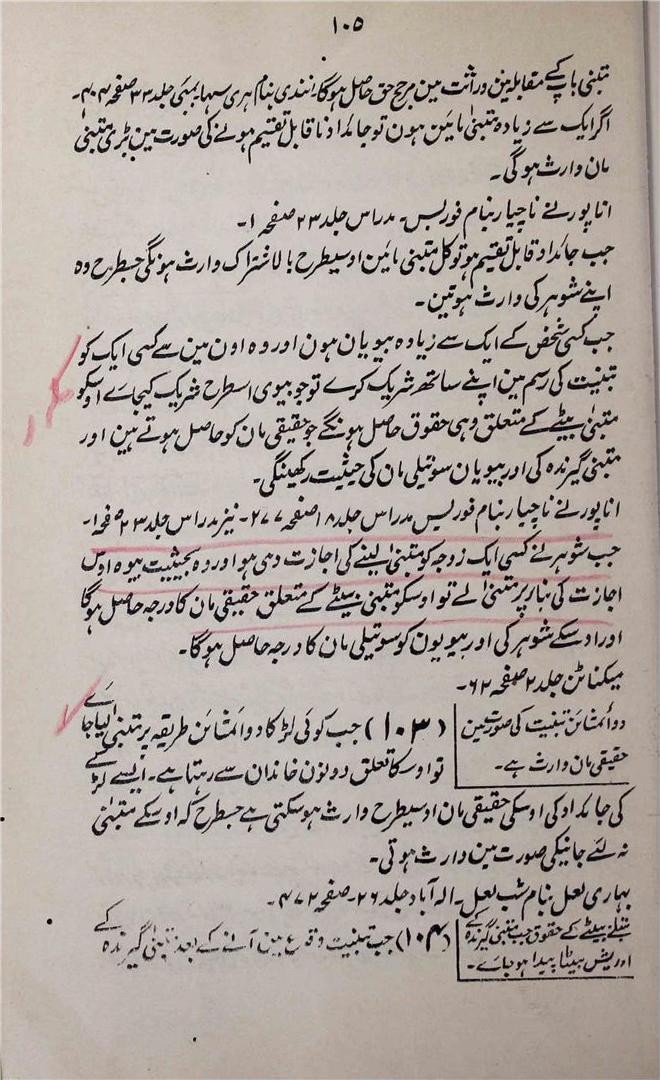 ۱۰۵
متبنی باپ کے مقابلہ مین وراثت مین مرجح حق حاصل ہوگا۔ انندی بنام ہری سہا۔ بمبئی جلد ۳۳ صفحہ ۴۰۴۔
اگر ایک سے زیادہ متبنیٰ مائین ہون تو جائداد ناقابل تقسیم ہونے کی صورت مین بڑی متبنیٰ
مان وارث ہوگی۔
اناپورنے ناچیار بنام فوربس۔ مدراس جلد ۲۳ صفحہ ۱۔
جب جائداد قابل تقسیم ہو تو کل متبنی مائین اوسیطرح بالاشتراک وارث ہونگی جسطرح وہ
اپنے شوہر کی وارث ہوتین۔
جب کسی شخص کے ایک سے زیادہ بیویان ہون اور وہ اون مین سے کسی ایک کو
تبنیت کی رسم مین اپنے ساتھ شریک کرے تو جو بیوی اسطرح شریک کیجائے اوسکو
متبنیٰ بیٹے کے متعلق وہی حقوق حاصل ہونگے جو حقیقی مان کو حاصل ہوتے ہین اور
متبنی گیرندہ کی اور بیویان سوتیلی مان کی حیثیت رکھینگی۔
اناپورنے ناچیار بنام فوربس مدراس جلد ۱۸ صفحہ ۲۷۷۔ نیز مدراس جلد ۲۳ صفحہ ۱۔
جب شوہر نے کسی ایک زوجہ کو متبنیٰ لینے کی اجازت دی ہو اور وہ بحیثیت بیوہ اوس
اجازت کی بنار پر متبنیٰ لے تو اوسکو متبنیٰ بیٹے کے متعلق حقیقی مان کا درجہ حاصل ہوگا
اور اوسکے شوہر کی اور بیویون کو سوتیلی مان کا درجہ حاصل ہوگا۔
میکناٹن جلد ۲ صفحہ ۶۲۔
دوامشائن تبنیت کی صورت مین
حقیقی مان وارث ہے۔
(۱۰۳) جب کوئی لڑکا دوامشائن طریقہ پر متبنیٰ لیا جائے
تو اوسکا تعلق دونون خاندان سے رہتا ہے۔ ایسے لڑکے
کی جائداد کی اوسکی حقیقی مان اوسیطرح وارث ہوسکتی ہے جسطرح کہ اوسکے متبنیٰ
نہ لئے جانیکی صورت مین وارث ہوتی۔
بہاری لعل بنام شب لعل۔ الہ آباد جلد ۲۶۔ صفحہ ۴۷۲۔
متبنے بیٹے کے حقوق جب متبنیٰ گیرندہ کے
اوریش بیٹا پیدا ہوجائے۔
(۱۰۴) جب تبنیت وقوع مین آنے کے بعد متبنیٰ گیرندہ کے